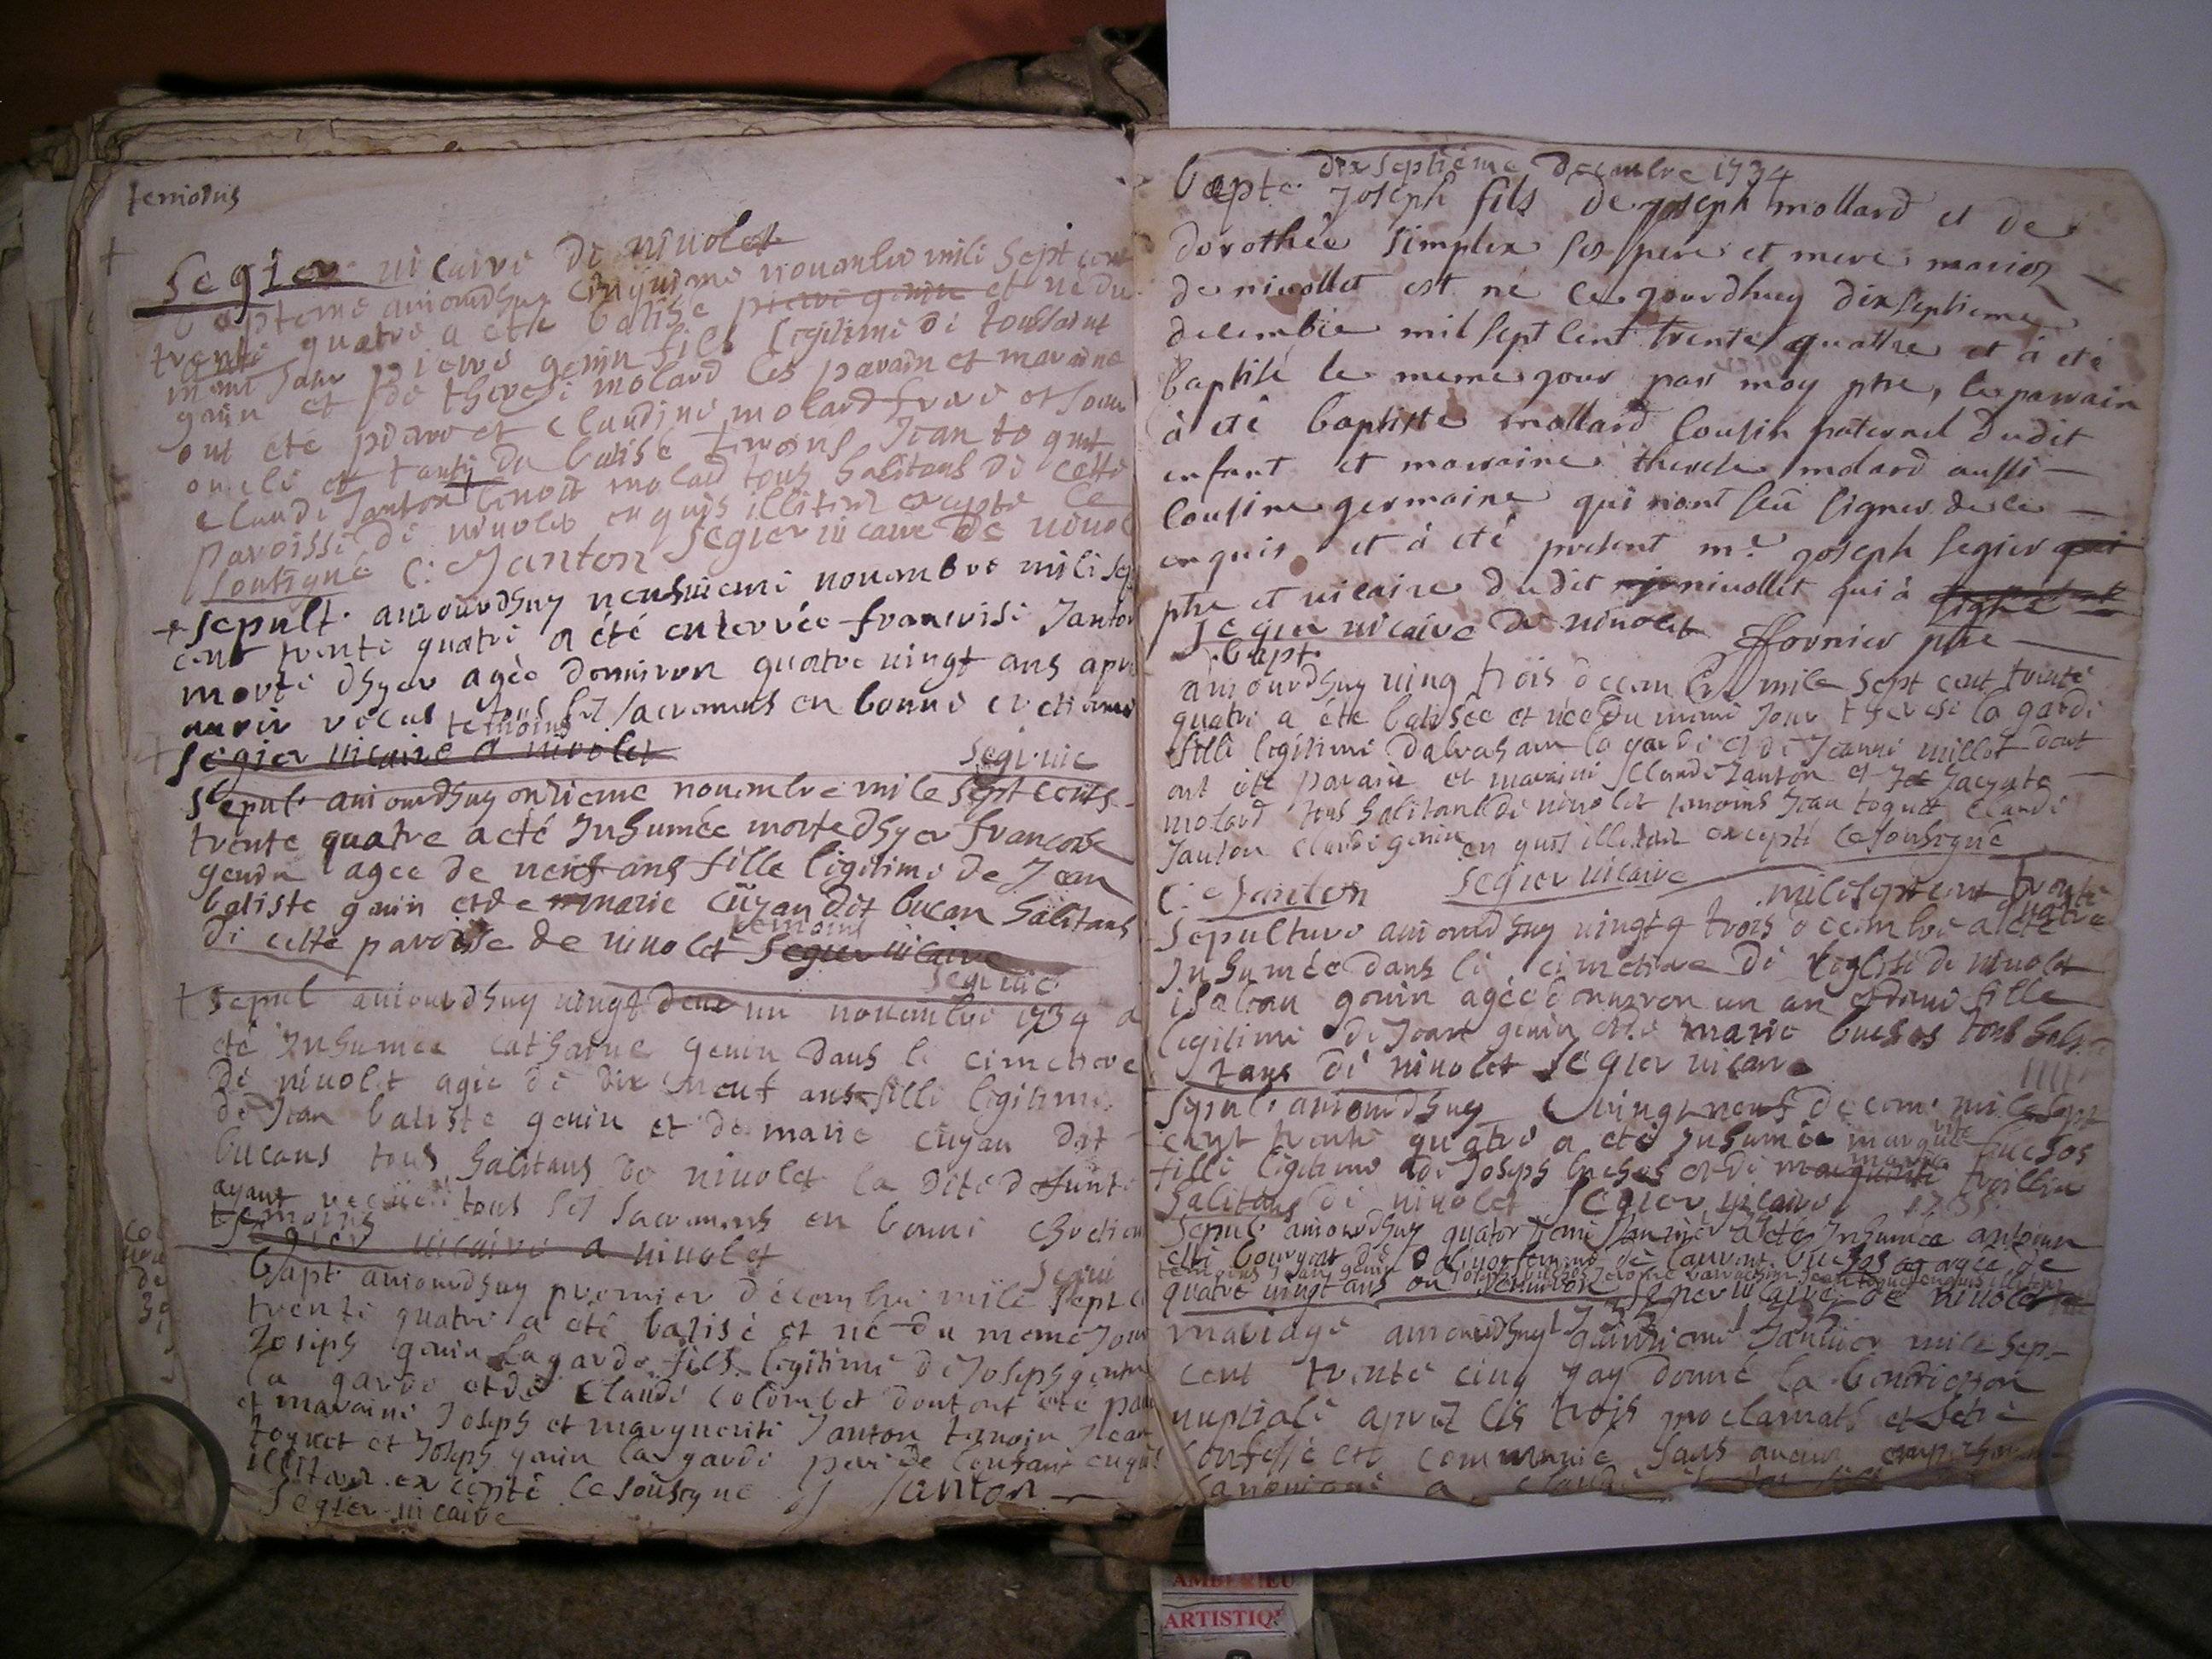 temoins
Segier vicaire de nivolet
bapteme aujourdhuy cinquieme novembre mile sept cent
trente quatre a été batisé pierre genin et né du
meme jour pierre genin fils legitime de toussaint
genin et de therese molard les parain et maraine
ont eté pierre et claudine molard frere et soeur
oncle et tante du batisé temoins Jean toquet
claude Janton benoit molard tous habitans de cette
paroisse de nivolet enquis illiteré excepté le
soussigné C: Janton Segier vicaire de nivol
Sepult. aujourdhuy neufvieme novembre mile sep
cent trente quatre a été enterrée francoise Janton
morte dhyer agée denviron quatre vingt ans apres
avoir recus tous les sacremens en bonne cretienne
temoins
segier vicaire a nivolet
Segi vic
Sepul. aujourdhuy onzieme novembre mile sept cents
trente quatre a eté Inhumée morte dhyer francoise
genin agee de neuf ans fille legitime de Jean
batiste genin et de marie cuyan dit bucan habitans
de cette paroisse de nivolet Segier vicaire
temoins
Segi vic
Sepul aujourdhuy vingt deux un novembre 1734 a
été Inhumée catherine genin dans le cimetiere
de nivolet agée de dix neuf ans fille legitime
de Jean batiste genin et de marie cuyan dit
bucans tous habitans de nivolet la dite defunte
ayant recüe tous les sacremens en bonne chretien
temoins
Segier vicaire a nivolet
Segi vi
bapt. aujourdhuy premier décembre mile sept c
trente quatre a été batisé et né du meme Jour
Joseph genin lagarde fils legitime de Joseph genin
la garde et de claude colombet dont ont eté par
et maraine Joseph et marguerite Janton temoin Jean
toquet et Joseph genin la garde pere de lenfant enquis
illiteré excepté le soussigné J Janton
Segier vicaire
bapte. dix septiéme decembre 1734
Joseph fils de joseph mollard et de
dorothée simplex ses pere et mere mariez
de nivollet est né ce jourdhuy dixseptieme
decembre mil sept cent trente quattre et à eté
baptisé le meme jour par moy ptre, le parrain
à eté baptiste mollard cousin paternel dudit
enfant et marraine therese molard aussi
cousine germaine qui n'ont seu signer de ce
enquis et à eté present mre joseph segier qui
ptre et vicaire dudit nivollet qui à signé
Segier vicaire de nivolet fornier ptre
bapt.
aujourdhuy vingt trois decembre mile sept cent trente
quatre a été batisée et née du meme Jour therese la garde
fille legitime dabraham la garde et de Jeanne millot dont
ont eté parain et maraine claude Janton et Jacynte
molard tous habitans de nivolet temoins Jean toquet claude
Janton claude genin enquis illiteré excepté le soussigné
C: Janton Segier vicaire
mile sept cent trente quatre
Sepulture aujourdhuy vingt trois decembre a eté
Inhumée dans le cimetiere de leglise de nivolet
isabeau genin agée denviron un an et demi fille
legitime de Jean genin et de marie buchos tous habi
tans de nivolet Segier vicaire
Sepul. aujourdhuy vingt neuf decem mile sept
cent trente quatre a été Inhumée marguerite buchos
fille legitime de Joseph buchos et de marie trillia
habitans de nivolet Segier vicaire
1735
Sepul. aujourdhuy quatorzieme Janvier a eté Inhumée antoinette
bourgat femme de laurent buchos agée de
quatre vingt ans ou environ Segier vicaire de nivolet
1735
mariage aujourdhuy quinzieme Janvier mile sept
cent trente cinq jay donné la benediction
nuptiale aprez les trois proclamats et setre
confessé et communié sans aucun empechement
canonique a claude
AMBERIEU
ARTISTIQ